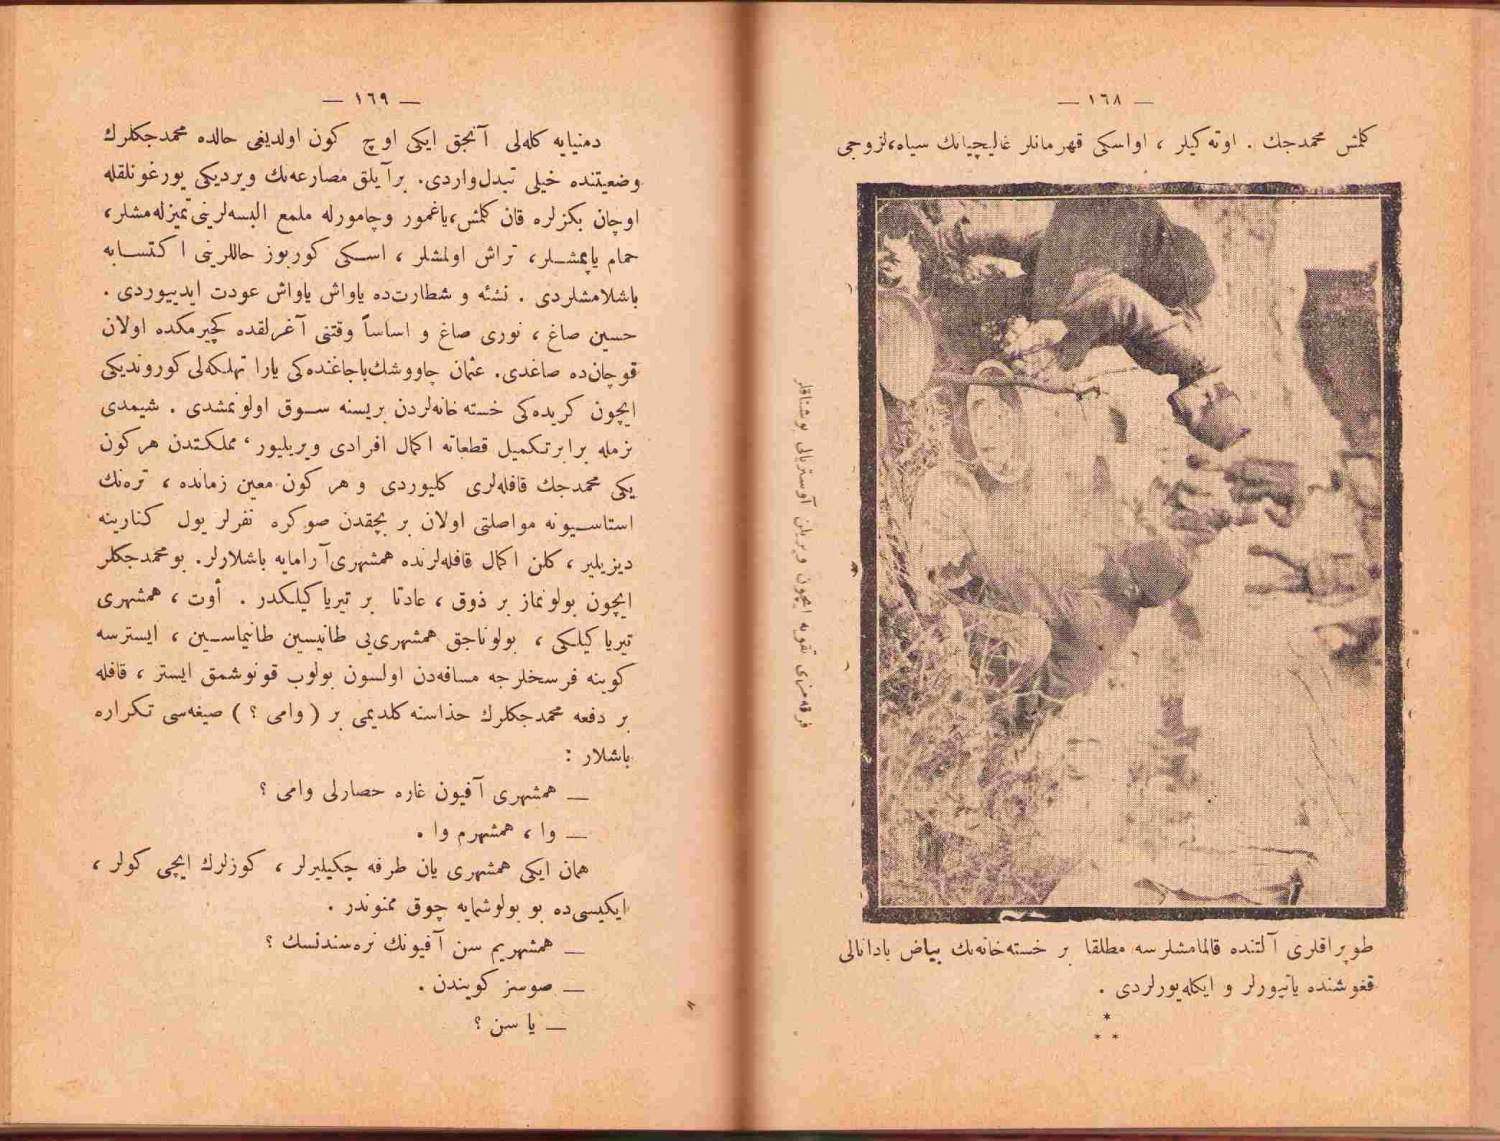 — ١٦٨ —
كلمش محمدجك . اوته‌كیلر ، اواسكی قهرمانلر غالیچیانك سیاه،لزوجی
فرقه‌مزی تقویه ایچون ویریلن آوستریالی بوشناقلر
طوپراقلری آلتنده قالمامشلرسه مطلقا بر خسته‌خانه‌نك بیاض بادانالی
قغوشنده یاتیورلر و ایكله‌یورلردی .
*
* *
— ١٦٩ —
دمنیایه كله‌لی آنجق ایكی اوچ كون اولدیغی حالده محمدجكلرك
وضعیتنده خیلی تبدل‌واردی. برآیلق مصارعه‌نك ویردیكی یورغونلقله
اوچان بكزلره قان كلمش،یاغمور وچامورله ملمع البسه‌لرینی تمیزله‌مشلر،
حمام یاپمشـلر، تراش اولمشلر ، اسـكی كوربوز حاللرینی اكتسـابه
باشلامشلردی . نشئه و شطارت‌ده یاواش یاواش عودت ایدییوردی .
حسین صاغ ، نوری صاغ و اساساً وقتنی آغرلقده كچیرمكده اولان
قوجان‌ده صاغدی. عثمان چاووشك‌باجاغنده‌كی یارا تهلكه‌لی كوروندیكی
ایچون كریده‌كی خسته خانه‌لردن بریسنه سـوق اولونمشدی . شیمدی
بزمله برابرتكمیل قطعاته اكمال افرادی ویریلیور، مملكتدن هركون
یكی محمدجك قافله‌لری كلیوردی و هر كون معین زمانده ، تره‌نك
استاسـیونه مواصلتی اولان بر بچقدن صوكره نفرلر یول كنارینه
دیزیلیر ، كلن اكمال قافله‌لرنده همشهری‌آرامایه باشلارلر. بومحمدجكلر
ایچون بولونماز بر ذوق ، عادتا بر تیریاكیلكدر . أوت ، همشهری
تیریاكیلكی ، بولوناجق همشهری‌یی طانیسین طانیماسـین ، ایسترسه
كوینه فرسخلرجه مسافه‌دن اولسون بولوب قونوشمق ایستر ، قافله
بر دفعه محمدجكلرك حذاسنه كلدیمی بر ( وامی ؟ ) صیغه‌سی تكراره
باشلار :
— همشهری آفیون غاره حصارلی وامی ؟
— وا ، همشهرم وا .
همان ایكی همشهری یان طرفه چكیلیرلر ، كوزلرك ایچی كولر ،
ایكیسی‌ده بو بولوشمایه چوق ممنوندر .
— همشهریم سن آفیونك نره‌سندنسك ؟
— صوسز كویندن .
— یا سن ؟